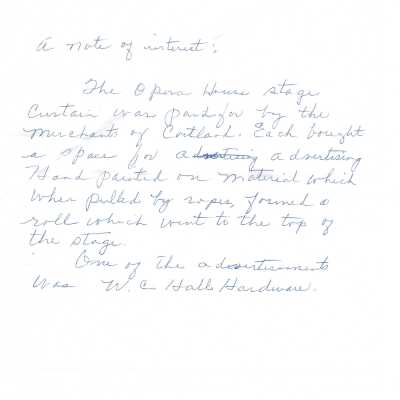 A note of interest:
The Opera House stage
Curtain was paid for by the
merchants of Cortland. Each bought
a space for advertising
Hand painted on material which
when pulled by ropes, formed a
roll which went to the top of
the stage.
One of the advertisements
was W. C Halls Hardware.